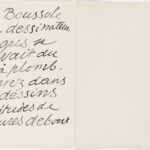 Boussole
dessinateur
gris se
vait du
à plomb.
ez dans
dessins
ures debout